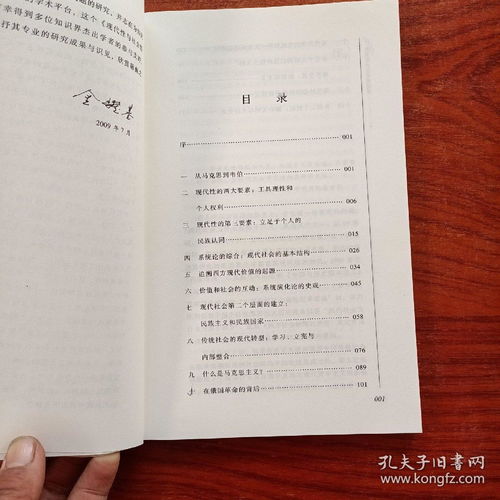 题的研究，并希望
学术平台，这个《现代性与
幸得到多位知识界杰出学者的参与
抒其专业的研究成果与识见，欣慰
金耀基
2009年7月
目 录
序 001
一 从马克思到韦伯 001
二 现代性的两大要素：工具理性和
个人权利 006
三 现代性的第三要素：立足于个人的
民族认同 015
四 系统论的综合：现代社会的基本结构 026
五 追溯西方现代价值的起源 034
六 价值和社会的互动：系统演化论的史观 045
七 现代社会第二个层面的建立：
民族主义和民族国家 058
八 传统社会的现代转型：学习、立宪与
内部整合 076
九 什么是马克思主义？ 089
十 在俄国革命的背后 101
001
孔夫子旧书网
www.kongfz.com